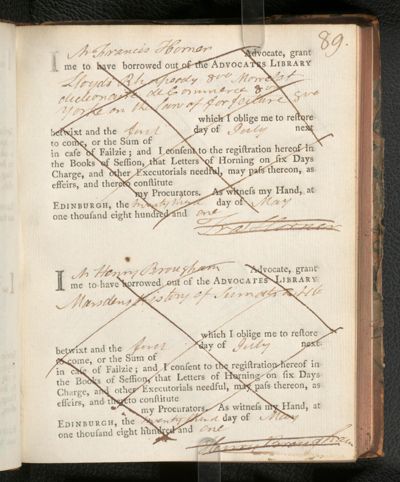 89.
I Mr Francis Horner Advocate, grant
me to have borrowed out of the ADVOCATES LIBRARY
Lloyds 8vo Morellet
dictionaire de Commerce 8vo
Yorke on the Law of forfeiture 8vo
which I oblige me to restore
betwixt and the first day of July next
to come, or the Sum of
in caſe of Failzie; and I conſent to the regiſtration hereof in
the Books of Seſſion, that Letters of Horning on ſix Days
Charge, and other Executorials needful, may paſs thereon, as
effeirs, and thereto conſtitute
my Procurators. As witneſs my Hand, at
EDINBURGH, the twenty third day of May
one thouſand eight hundred and one
Fra: Horner
I Mr Henry Brougham Advocate, grant
me to have borrowed out of the ADVOCATES LIBRARY
Marsdens History of Sumatra
which I oblige me to reſtore
betwixt and the first day of July next
to come, or the Sum of
in caſe of Failzie; and I conſent to the regiſtration hereof in
the Books of Seſſion, that Letters of Horning on ſix Days
Charge, and other Executorials needful, may paſs thereon, as
effeirs, and thereto conſtitute
my Procurators. As witneſs my Hand, at
EDINBURGH, the twenty third day of May
one thouſand eight hundred and one
Henry Brougham